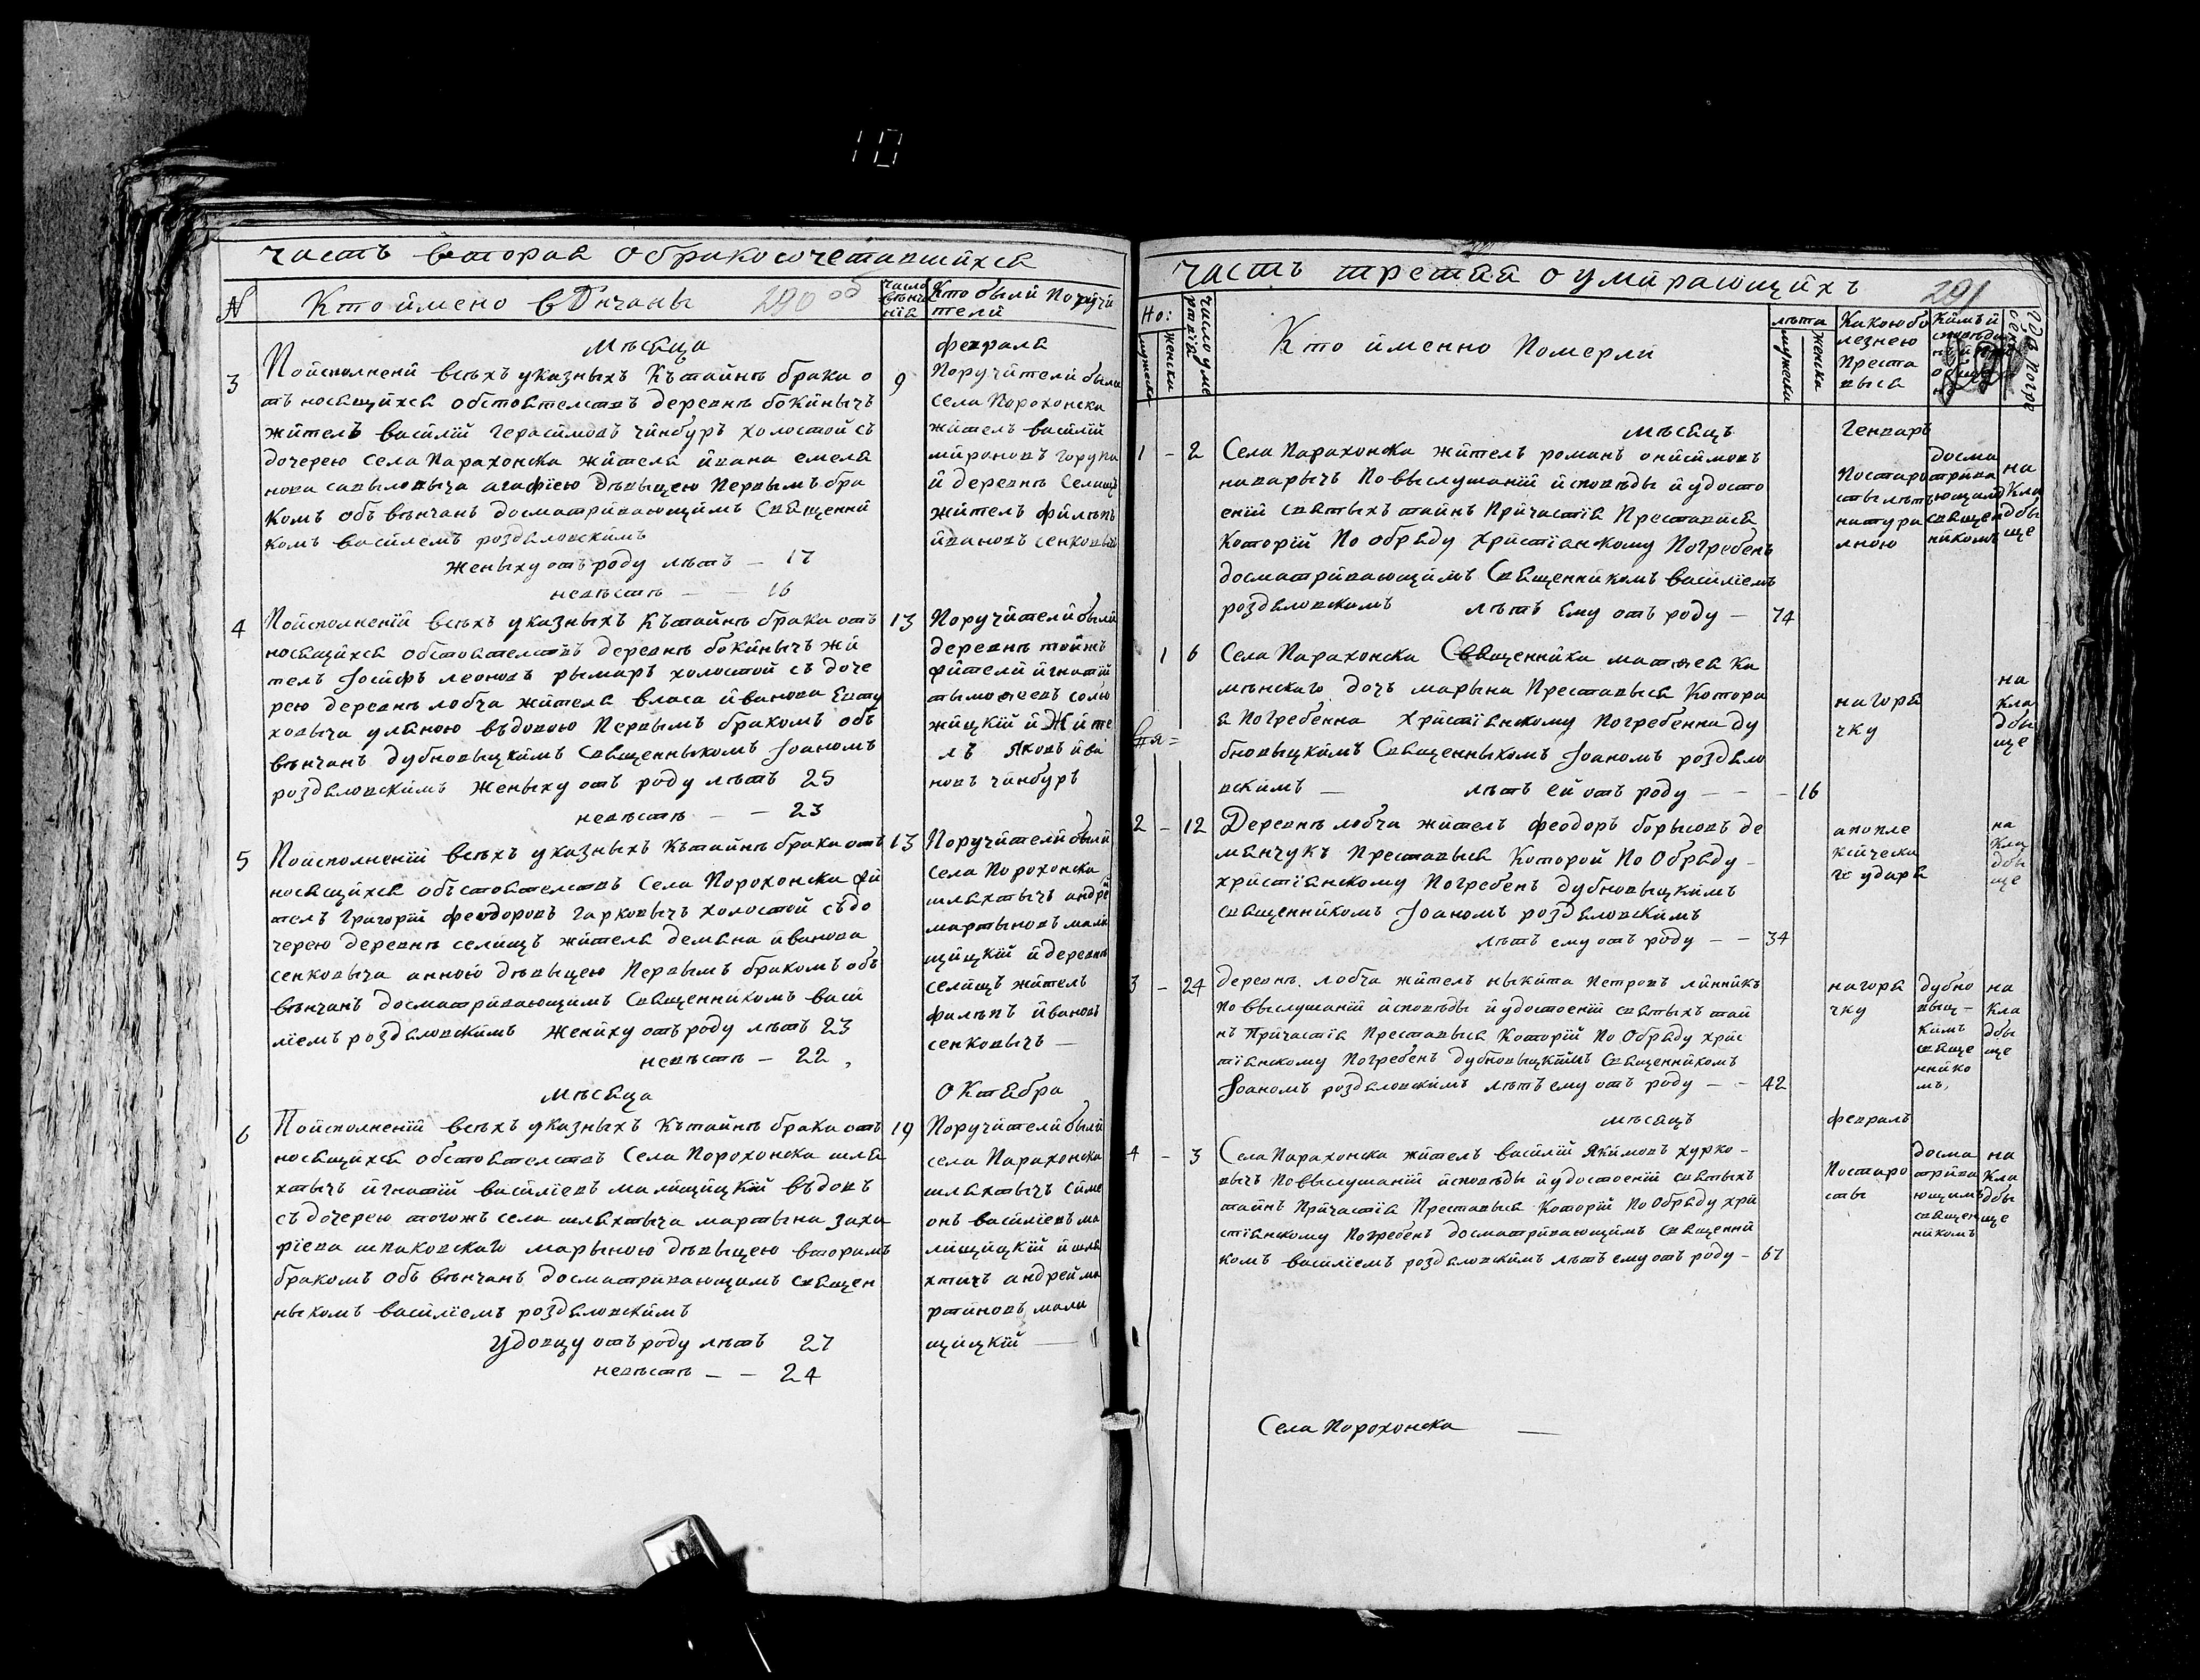 10
часть вторая обракосочетавшйхся
N
Кто ймено вѢнчаны
290 об
число вѣнчанія
Кто были Поручйтелй
мѣсяца
феврала
3
Пойсполненй всѣхъ указныхъ Къ тайнѣ брака о
тъ носящйхся обстоятелствъ деревнѣ бокйнычъ
жйтель васйлій герасймовъ чйнбуръ холостой съ
дочерею села Парахонска жйтеля йвана емеля
нова савыловыча агафіею дѣвыцею Первымъ бра
комъ объ вѣнчанъ досматрйвающймъ Священнй
комъ васйлемъ роздяловскймъ
женыху отъ роду лѣтъ – 17
невѣстѣ – – 16
9
Поручйтелй былй
села Порохонска
жйтель васйлій
мйроновъ горупа
й деревнѣ Селищъ
жйтель фйлыпъ
йвановъ сенковыч
4
Пойсполненій всѣхъ указныхъ Къ тайнѣ брака отъ
носящйхся обстоятелствъ деревнѣ бокйнычъ жй
тель Іосйфъ леоновъ рымаръ холостой съ доче
рею деревнѣ лобча жйтеля власа йванова Евту
ховыча уляною въдовою Первымъ бракомъ объ
вѣнчанъ дубновыцкймъ Священныкомъ Іоаномъ
роздяловскймъ Женыху отъ роду лѣтъ 25
невѣстѣ – – 23
13
Поручйтелй былй
деревнѣ тойжъ
жйтелй йгнатій
тымофеевъ соло
жйцкій й Жйте
лъ Яковъ йва
новъ чйнбуръ
5
Пойсполненій всѣхъ указныхъ Къ тайнѣ брака отъ
носящйхся объстоятелствъ Села Порохонска жй
телъ Григорій феодоровъ гарковычъ холостой съ до
черею деревнѣ селищъ жйтеля демяна йванова
сенковыча анною дѣвыцею Первымъ бракомъ объ
вѣнчанъ досматрйвающимъ Священнйкомъ васй
ліемъ роздяловскймъ женйху отъ роду лѣтъ 23
невѣстѣ – 22
13
Поручйтелй былй
села Порохонска
шляхтычъ андрей
мартыновъ мале
щйцкій й деревнѣ
селйщъ жйтель
филыпъ йвановъ
сенковычъ –
мѣсяца
октября
6
Пойсполненій всѣхъ указныхъ Къ тайнѣ брака отъ
носящйхся обстоятелствъ Села Порохонска шля
хтычъ йгнатій васйліевъ малйщйцкій въдовъ
съ дочерею тогожъ села шляхтыча мартына заха
ріева шпаковскаго марыною дѣвыцею вторымъ
бракомъ объ вѣнчанъ досматрйвающимъ священ
ныкомъ васйліемъ роздяловскймъ
удовцу отъ роду лѣтъ 27
невѣстѣ – – 24
19
Поручйтелй былй
села Парахонска
шляхтычъ сйме
онъ васйліевъ ма
лйщйцкій й шля
хтичъ андрей ма
ртйновъ мале
щйцкій –
часть третяя о умйрающйхъ
291
Но:
мужеска
женска
число умертвія
Кто йменно Померлй
лѣта
мужеска
женска
Какою бо
лезнею
Преста
выся
Кймъ й
Где погре
мѣсяцъ
Генваръ
1 – 2
Села Парахонска жйтелъ романъ онйсймовъ
наварычъ Повыслушаній йсповѣды й удосто
еній святыхъ тайнъ Прйчастія Преставйся
Которій По обряду хрйстіанскому Погребенъ
досматрйвающймъ Священнйкомъ васйліемъ
роздяловскомъ лѣтъ Ему отъ роду – 74
Постаро
сты лѣтъ
натура
лною
досма
трйва
ющимъ
священ
нйкомъ
на
кла
дбы
ще
1 6
Села Парахонска Священнйка матѳея Ка
мѣнскаго дочъ марына Преставыся Котора
я Погребенна хрйстіянскому Погребенна ду
бновыцкймъ Священныкомъ Іоаномъ роздяло
вскймъ – лѣтъ ей отъ роду – – – 16
нагоря
чку
на
кла
дбы
ще
2 – 12
Деревнѣ лобча жйтелъ феодоръ борысовъ де
мянчукъ Преставыся Которой По Обряду –
хрйстіянскому Погребенъ дубновыцкймъ
священнйкомъ Іоаномъ роздяловскймъ
лѣтъ ему отъ роду – – 34
апопле
ксйческа
го удара
на
кла
дбы
ще
3 – 24
Деревнѣ лобча жйтелъ ныкйта Петровъ лйннйкъ
Повыслушаній йсповѣды й удостоеній святыхъ тай
нъ Прйчастія Преставыся Которій По Обряду хрйс
тіянскому Погребенъ дубновыцкймъ Священнйкомъ
Іоаномъ роздяловскймъ лѣтъ ему отъ роду – – 42
нагоря
чку
дубно
выц–
кймъ
свяще
ннйко
мъ
на
Кла
дбы
ще
мѣсяцъ
февралъ
4 – 3
Села Парахонска жйтелъ васйлій Якймовъ хурко–
вычъ Повыслушаній йсповѣды й удостоеній святыхъ
тайнъ Прйчастія Преставыся Которій По Обряду хрй
стіянскому Погребенъ досматрйвающймъ священнй
комъ васйліемъ роздяловскймъ лѣтъ ему отъ роду – 67
Постаро
сты
досма
трйва
ющимъ
священ
нйкомъ
на
Кла
дбы
ще
Села Порохонска –